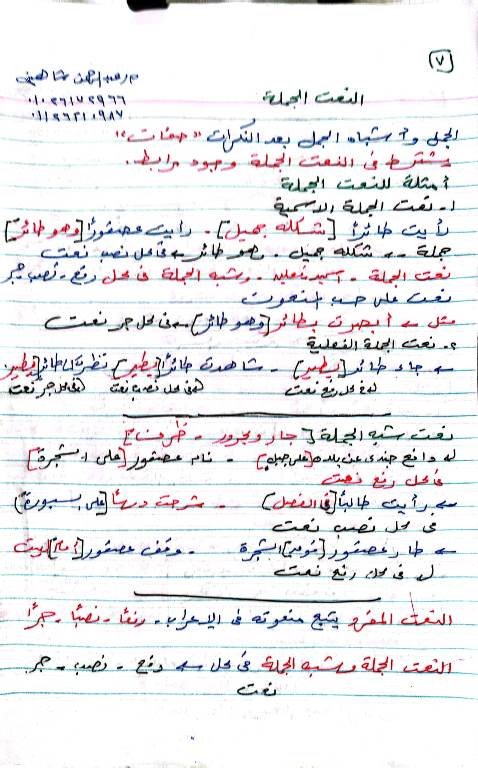 ٧
م. عبدالرحمن شاهين
٠١٠٢٦١٧٢٩٦٦
النعت الجملة
الجمل وأشباه الجمل بعد النكرات "صفات"
يشترط فى النعت الجملة وجود رابط.
أمثلة للنعت الجملة
١- نعت الجملة الاسمية
رأيت طائرًا [شكله جميل]. رأيت عصفورًا [وهو طائر]
جملة ← شكله جميل. وهو طائر ← فى محل نصب نعت
نعت الجملة - اسمية، فعلية - وشبه الجملة فى محل رفع - نصب، جر
نعت على حسب المنعوت
مثل ← أبصرت بطائر [وهو طائر] ← فى محل جر نعت
٢- نعت الجملة الفعلية
← جاء طائر [يطير] - شاهدت طائرًا [يطير] نظرت إلى طائر [يطير]
فى محل رفع نعت فى محل نصب نعت فى محل جر نعت
نعت شبه الجملة [جار ومجرور - ظرف]
دافع جندى عن بلاده [على جبل] - نام عصفور [على الشجرة]
فى محل رفع نعت
← رأيت طالبًا [فى الفصل] ← شرحت درسًا [على سبورة]
فى محل نصب نعت
← طار عصفور [فوق] الشجرة - وقف عصفور [أمام] البيت
فى محل رفع نعت
النعت المفرد يتبع منعوته فى الإعراب - رفعًا - نصبًا - جرًا
النعت الجملة وشبه الجملة فى محل ← رفع - نصب - جر
نعت